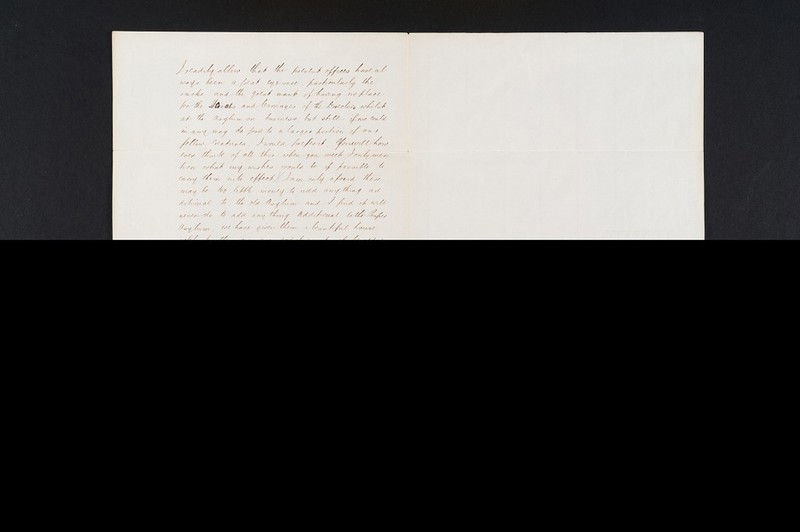 I readily allow that the present offices have al
ways been a great eye-sore particularly the
and the great want of having no place
for the and Carriages of the Directors whilst
at the Asylum on business but still if we could
in any way do good to a larger portion of our
fellow creatures, I would prefer it. You will how
ever think of all this when you meet I only men
tion what my wishes would be if possible to
carry them into effect. I am only afraid there
may be too little money to add any thing ad
ditional to the old Asylum and I find it will
never do to add any thing additional to the
Asylum, we have given them a beautiful house